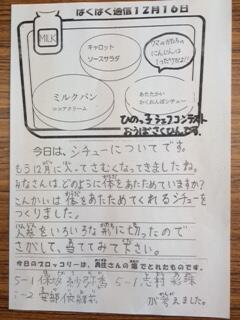 ぱくぱく通信12月16日
MILK
キャロット
ソースサラダ
クマのかたちの
にんじんは
1つだけだよ!!
ミルクパン
ココアクリーム
あたたかい
かくれんぼシチュー
ひのっ子シェフコンテスト
おうぼさくひんです。
今日は、シチューについてです。
もう12月に入ってさむくなってきましたね。
みなさんは、どのように体をあたためていますか?
こんかいは体をあたためてくれるシチューを
つくりました。
人参をいろいろな形に切ったので
さがして、当ててみて下さい。
今日のブロッコリーは、真庄さんの畑でとれたものです。
5-1 保坂 5-1 志村
が考えました。